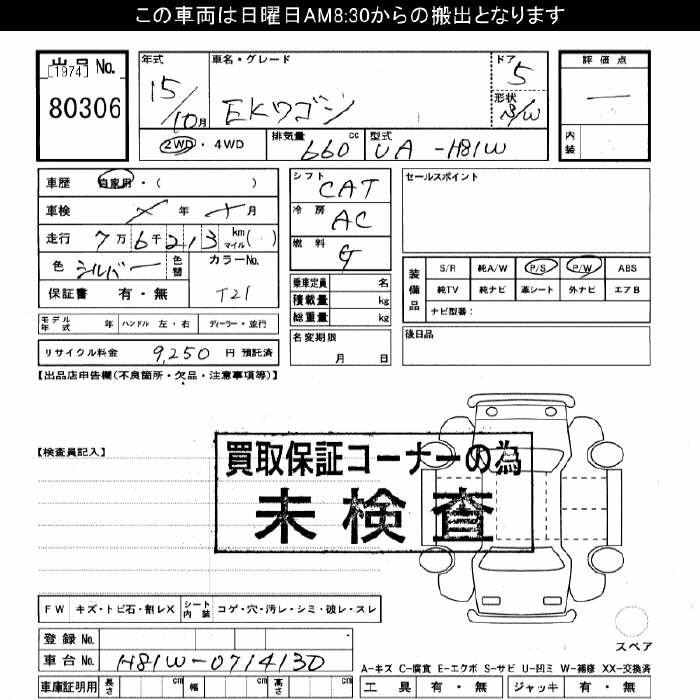 この車両は日曜日AM8:30からの搬出となります
出品No. [1974]
80306
年式 15/10月
車名・グレード EKワゴン
ドア 5
形状 S/W
評価点 —
内装
2WD・4WD
排気量 660 cc
型式 UA-H81W
車歴 自家用・( )
車検 メ年 メ月
走行 7万6千213 km マイル( )
色 シルバー 色替
カラーNo. T21
保証書 有・無
シフト CAT
冷房 AC
燃料 G
乗車定員 名
積載量 kg
総重量 kg
セールスポイント
装備品
S/R 純A/W P/S P/W ABS
純TV 純ナビ 革シート 外ナビ エアB
ナビ型番:
モデル年式 年 ハンドル 左・右 ディーラー・並行
名変期限 月 日
後日品
リサイクル料金 9,250 円 預託済
【出品店申告欄(不良箇所・欠品・注意事項等)】
【検査員記入】
買取保証コーナーの為
未検査
FW キズ・トビ石・割レX シート内装 コゲ・穴・汚レ・シミ・破レ・スレ
スペア
登録No.
車台No. H81W-0714130
A-キズ C-腐食 E-エクボ S-サビ U-凹ミ W-補修 XX-交換済
車庫証明用 長さ cm 幅 cm 高さ cm
工具 有・無 ジャッキ 有・無